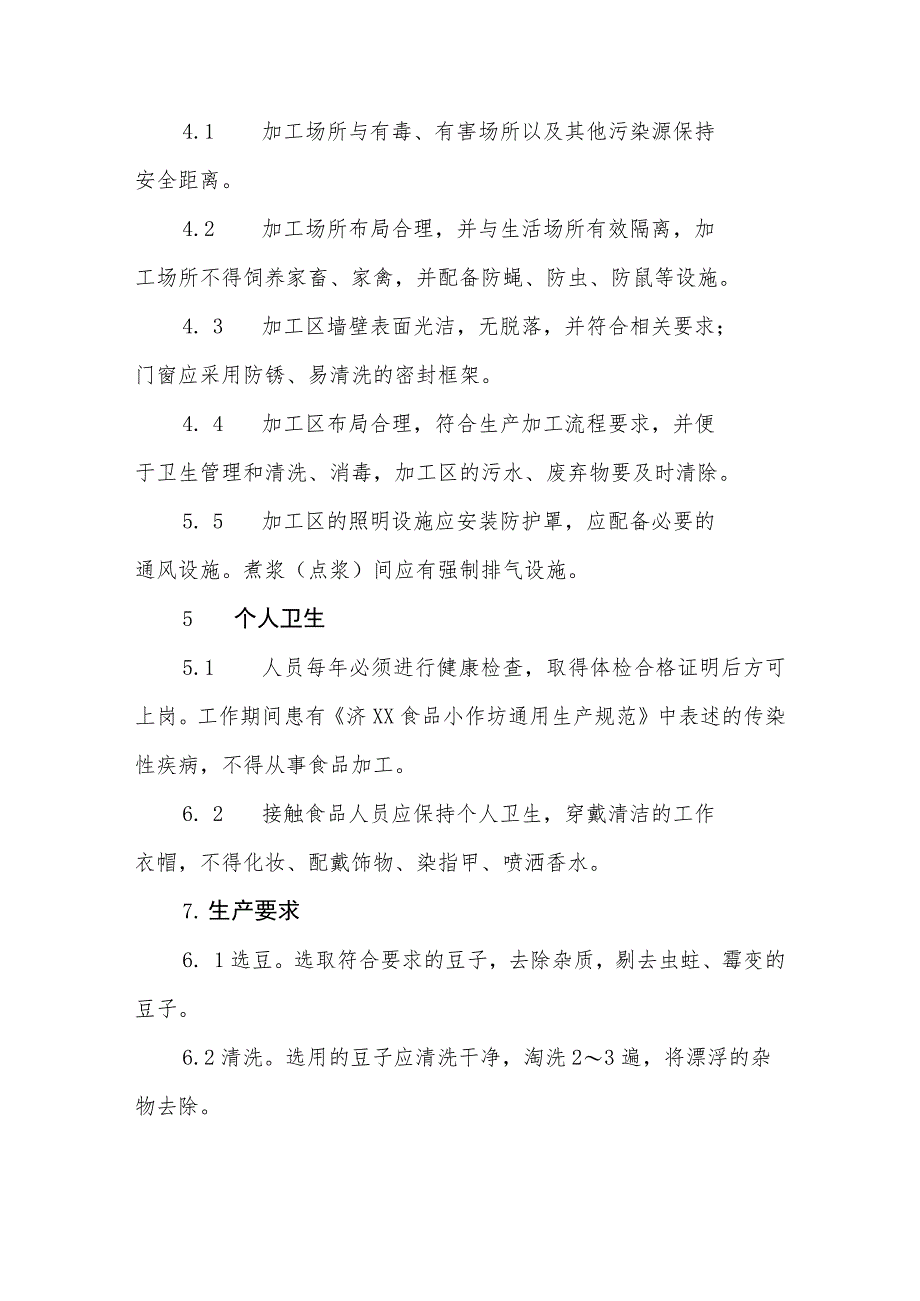 4.1 加工场所与有毒、有害场所以及其他污染源保持
安全距离。
4.2 加工场所布局合理，并与生活场所有效隔离，加
工场所不得饲养家畜、家禽，并配备防蝇、防虫、防鼠等设施。
4. 3 加工区墙壁表面光洁，无脱落，并符合相关要求；
门窗应采用防锈、易清洗的密封框架。
4. 4 加工区布局合理，符合生产加工流程要求，并便
于卫生管理和清洗、消毒，加工区的污水、废弃物要及时清除。
5. 5 加工区的照明设施应安装防护罩，应配备必要的
通风设施。煮浆（点浆）间应有强制排气设施。
5 个人卫生
5.1 人员每年必须进行健康检查，取得体检合格证明后方可
上岗。工作期间患有《济 XX 食品小作坊通用生产规范》中表述的传染
性疾病，不得从事食品加工。
6. 2 接触食品人员应保持个人卫生，穿戴清洁的工作
衣帽，不得化妆、配戴饰物、染指甲、喷洒香水。
7. 生产要求
6. 1 选豆。选取符合要求的豆子，去除杂质，剔去虫蛀、霉变的
豆子。
6.2 清洗。选用的豆子应清洗干净，淘洗 2～3 遍，将漂浮的杂
物去除。